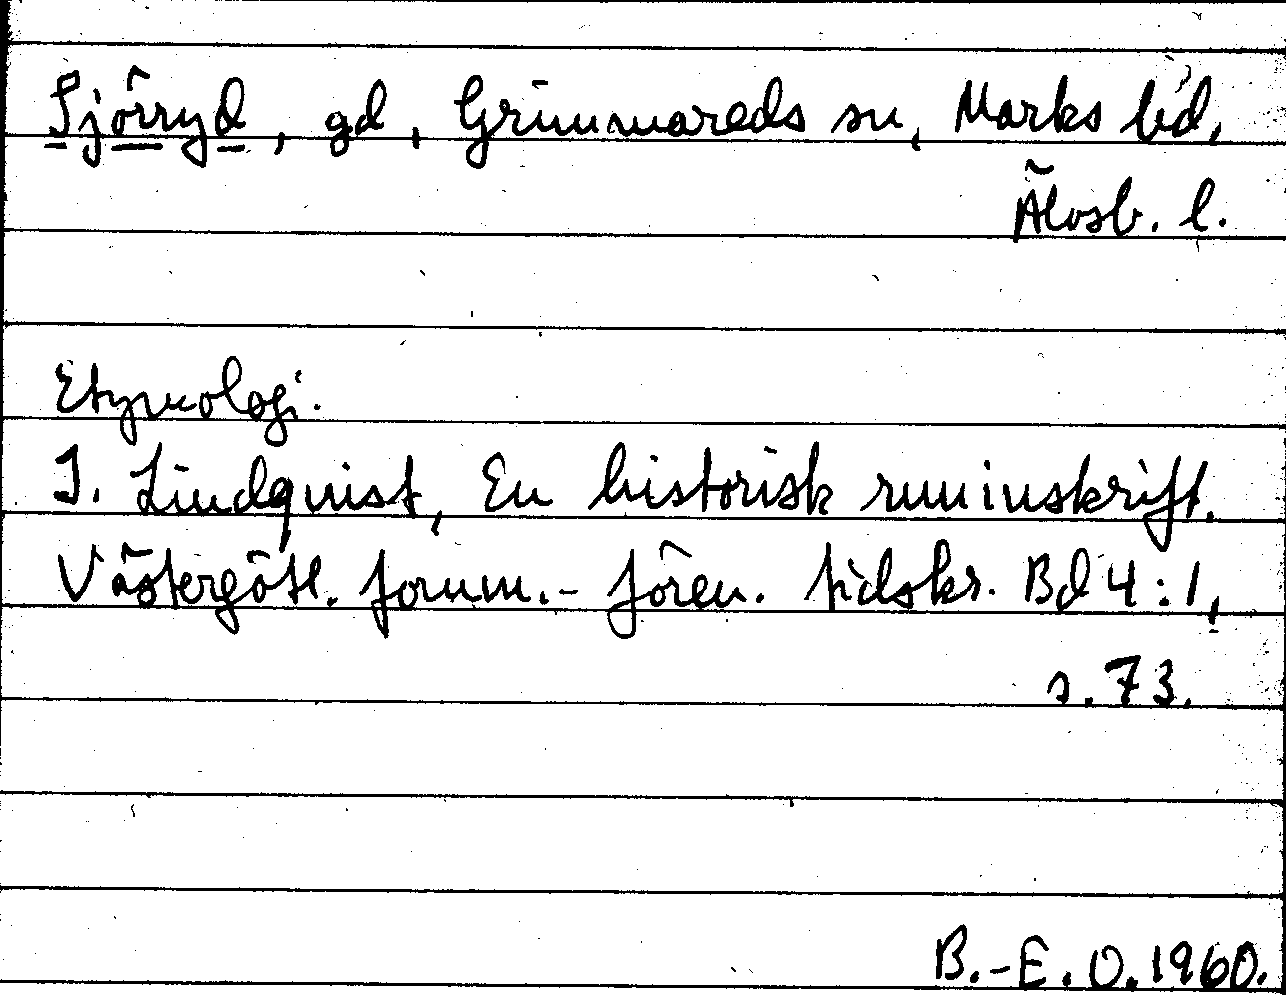 Sjörryd, gd, Grimmareds sn, Marks hd,
Älvsb. l.
Etymologi.
I. Lindqvist, En historisk runinskrift.
Västergötl. fornm.-fören. tidskr. Bd 4:1,
s. 73.
B.-E. O. 1960.